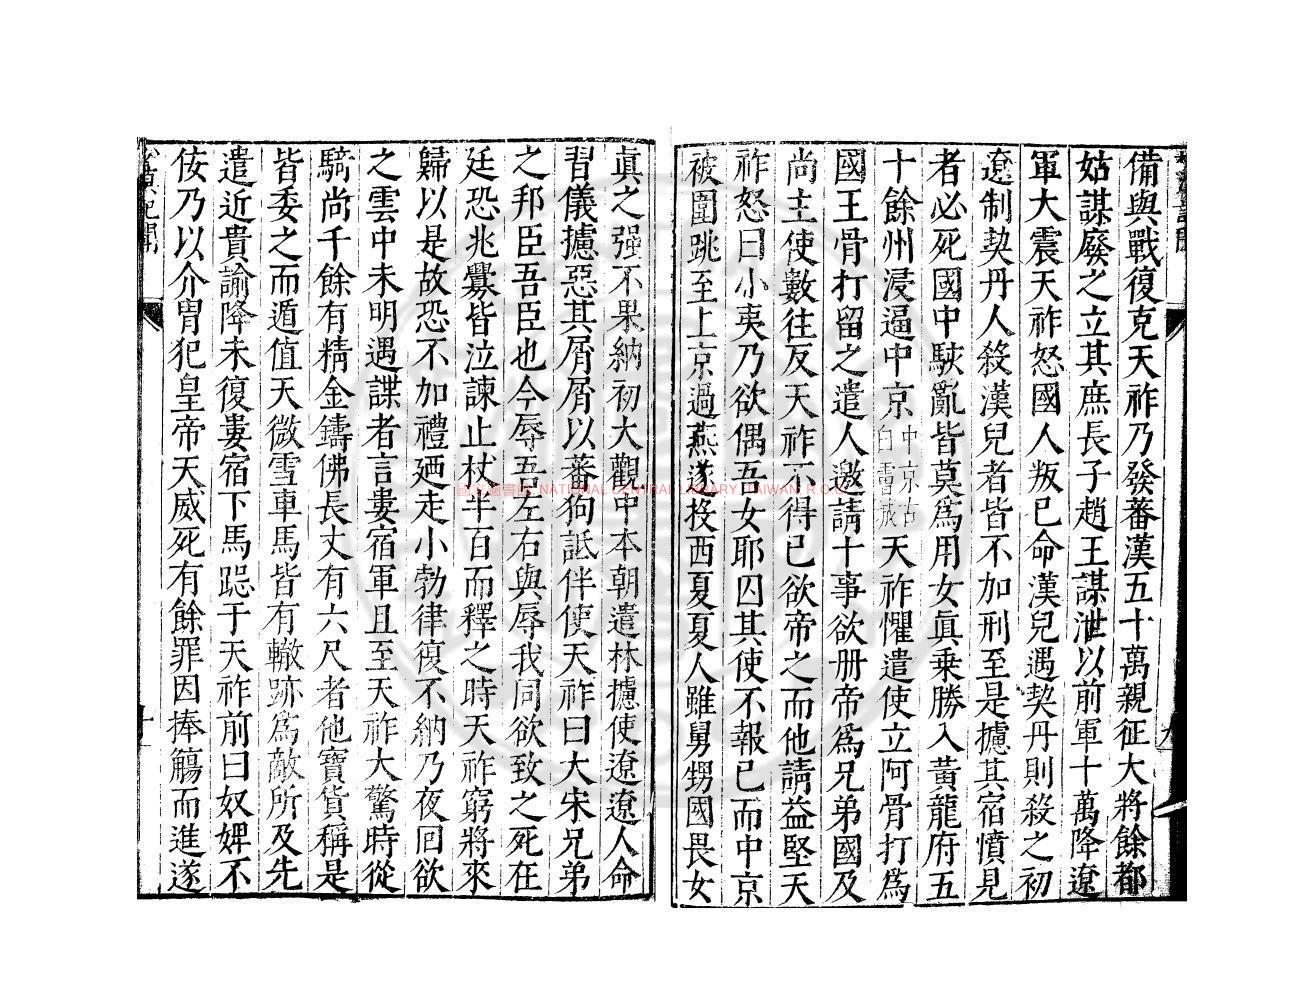 備與戰復克天祚乃發蕃漢五十萬親征大將餘都
姑謀廢之立其庶長子趙王謀泄以前軍十萬降遼
軍大震天祚怒國人叛已命漢兒遇契丹則殺之初
遼制契丹人殺漢兒者皆不加刑至是攄其宿憤見
者必死國中駭亂皆莫爲用女真乗勝入黄龍府五
十餘州浸逼中京中京古白霫城天祚懼遣使立阿骨打爲
國王骨打留之遣人邀請十事欲册帝爲兄弟國及
尚主使數往反天祚不得已欲帝之而他請益堅天
祚怒曰小夷乃欲偶吾女耶囚其使不報已而中京
被圍跳至上京過燕遂投西夏夏人雖舅甥國畏女
真之强不果納初大觀中本朝遣林攄使遼遼人命
習儀攄惡其屑屑以蕃狗詆伴使天祚曰大宋兄弟
之邦臣吾臣也今辱吾左右與辱我同欲致之死在
廷恐兆釁皆泣諫止杖半百而釋之時天祚窮將來
歸以是故恐不加禮廼走小勃律復不納乃夜回欲
之雲中未明遇諜者言婁宿軍且至天祚大驚時從
騎尚千餘有精金鑄佛長丈有六尺者他寶貨稱是
皆委之而遁值天微雪車馬皆有轍跡爲敵所及先
遣近貴諭降未復婁宿下馬跽于天祚前曰奴婢不
佞乃以介胄犯皇帝天威死有餘罪因捧觴而進遂
國家圖書館 NATIONAL CENTRAL LIBRARY, TAIWAN, R.O.C